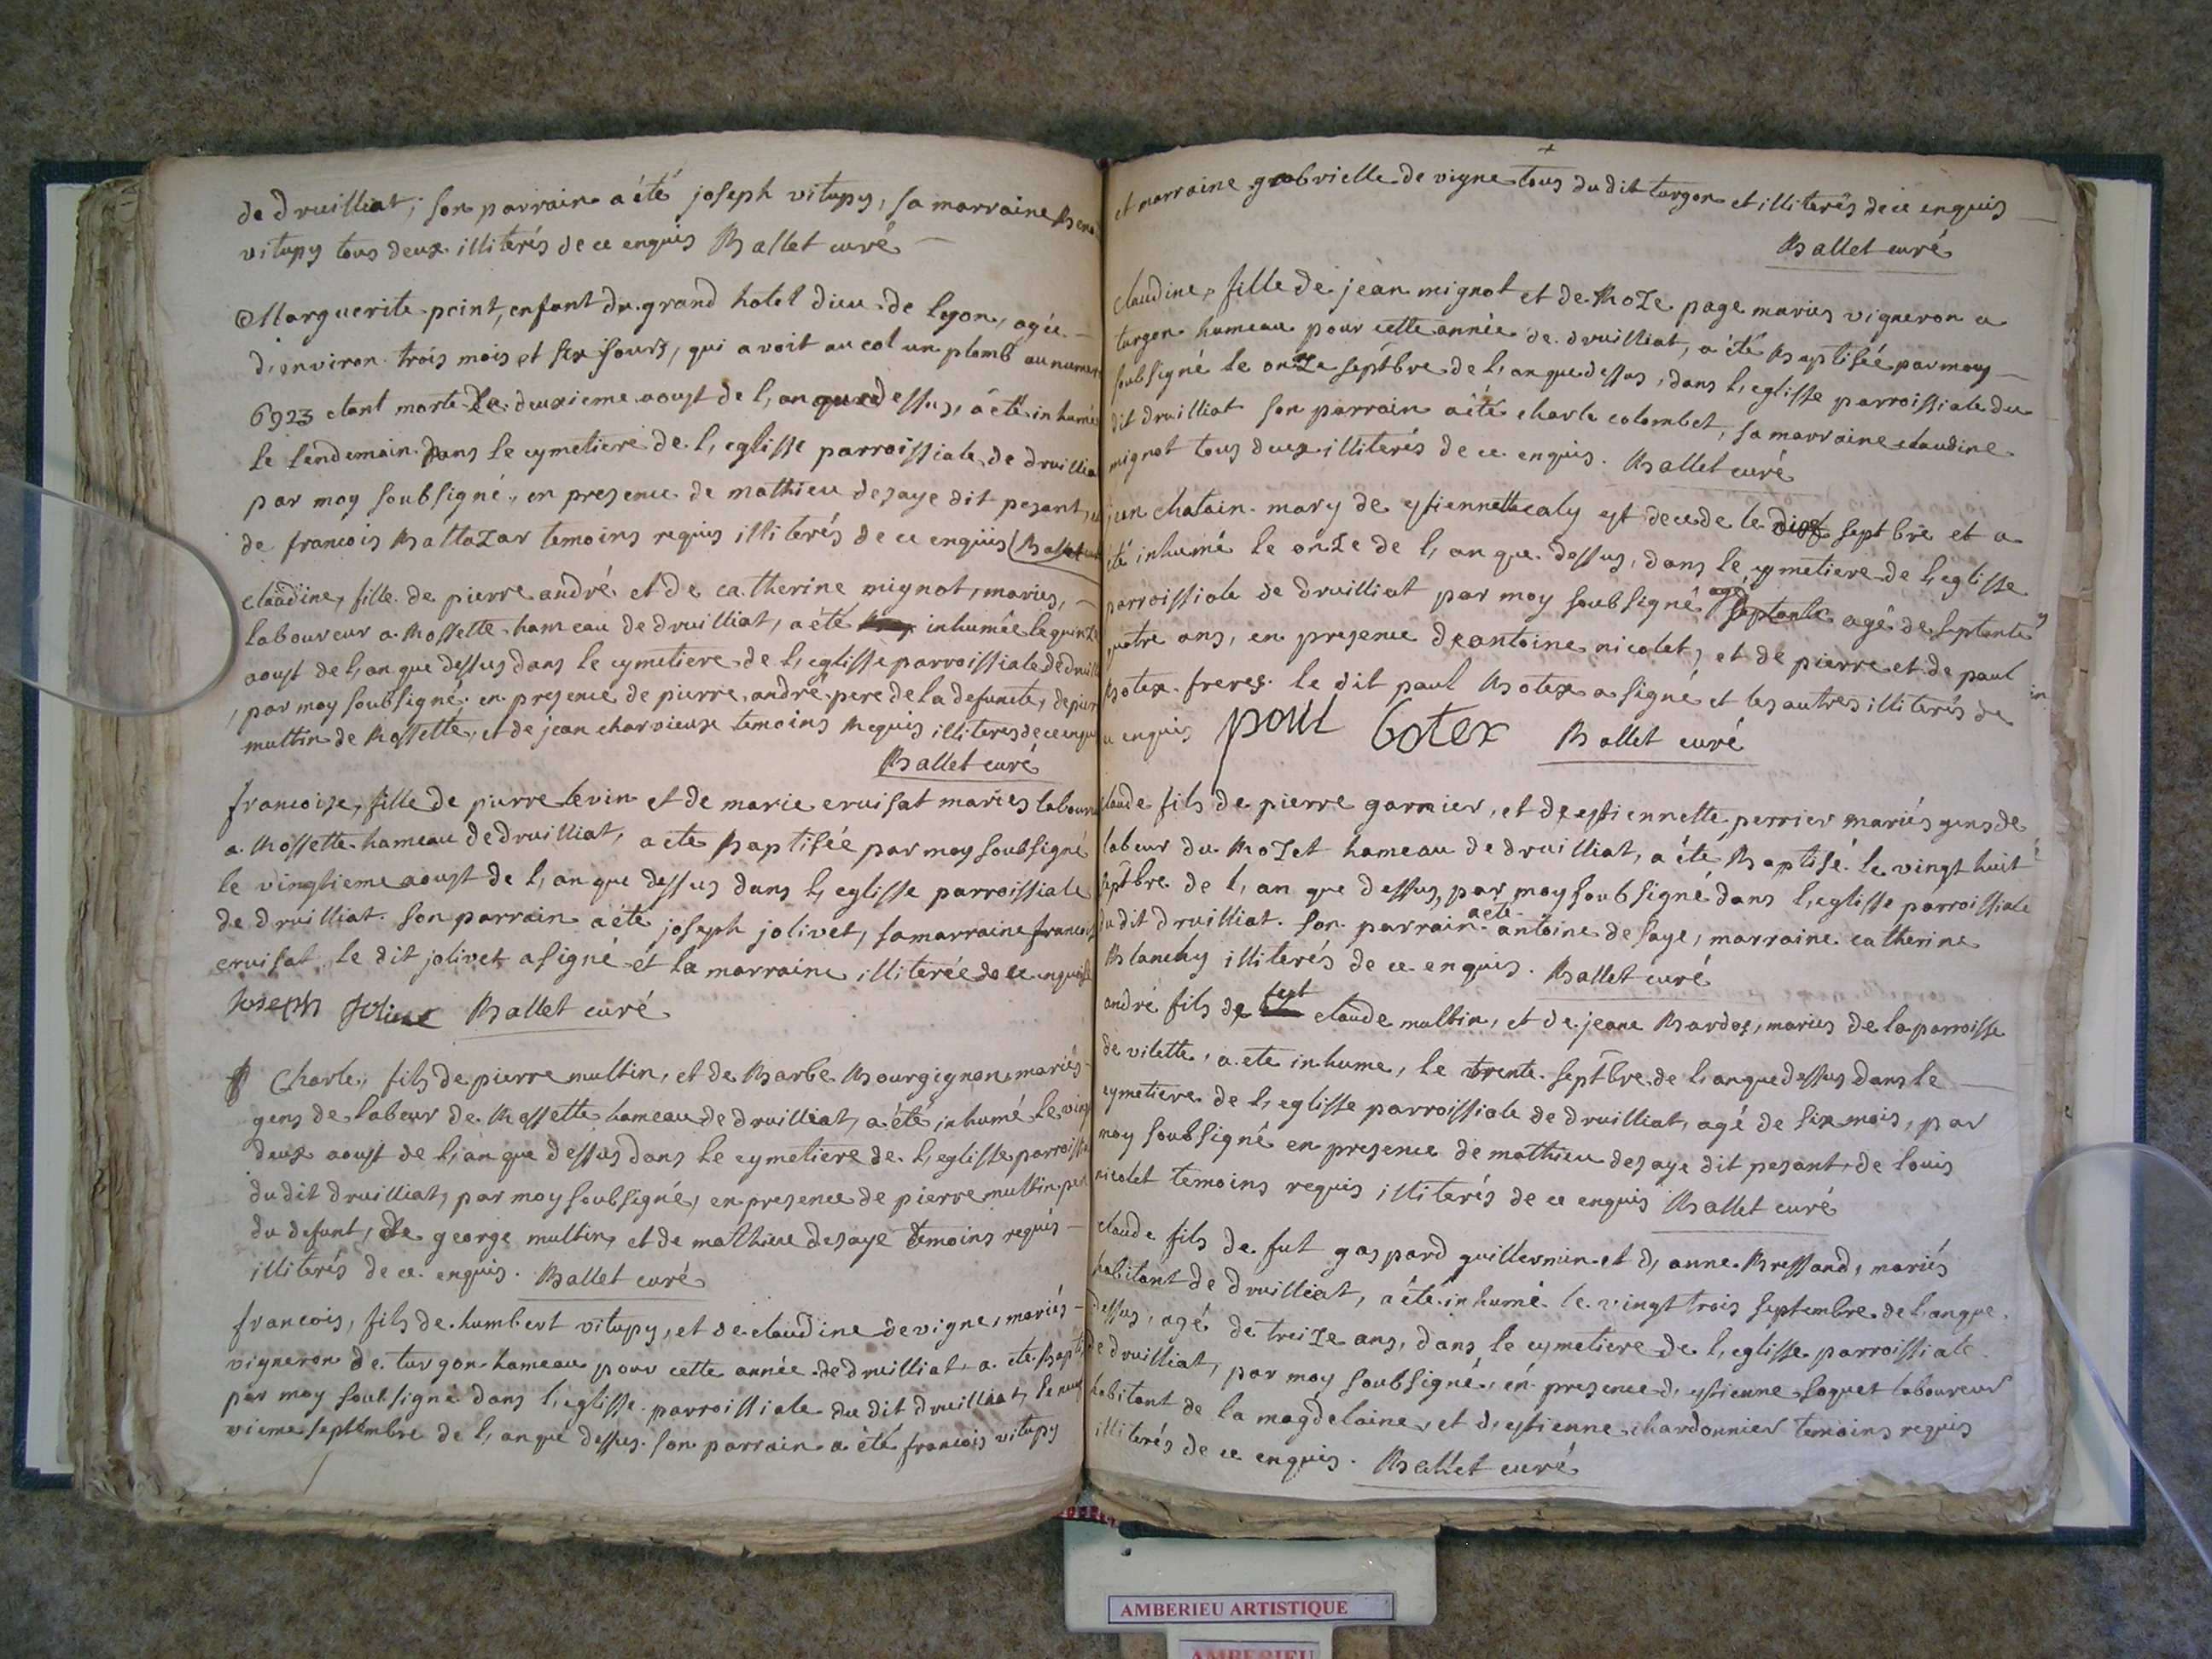 de druilliat; son parrain a été joseph vitupy, sa marraine
vitupy tous deux illiterés de ce enquis Ballet curé
Marguerite point, enfant du grand hotel dieu de lyon, agée
d'environ trois mois et six jours, qui avoit au col un plomb au numero
6923 etant morte le deuxieme aoust de l'an que dessus, a été inhumée
le lendemain dans le cymetiere de l'eglisse parroissiale de druilliat
par moy soubsigné, en presence de mathieu desaye dit pesant, et
de francois Baltazar temoins requis illiterés de ce enquis Ballet curé
claudine, fille de pierre andré et de catherine mignot, mariés,
laboureur a Rossette hameau de druilliat, a été inhumée le quinze
aoust de l'an que dessus dans le cymetiere de l'eglisse parroissiale de druilliat
, par moy soubsigné, en presence de pierre andré pere de la defunte, de pierre
multin de Rossette, et de jean charvieux temoins Requis illiteres de ce enquis
Ballet curé
francoise, fille de pierre levin et de marie cruisat mariés laboureur
a Rossette hameau de druilliat, a été Baptisée par moy soubsigné
le vingtieme aoust de l'an que dessus dans l'eglisse parroissiale
de druilliat. son parrain a été joseph jolivet, sa marraine francoise
cruisat, le dit jolivet a signé et la marraine illiterée de ce enquise
Joseph Ballet curé
Charle, fils de pierre multin, et de Barbe Bourgignon, mariés
gens de labeur de Rossette hameau de druilliat, a été inhumé le vingt
deux aoust de l'an que dessus dans le cymetiere de l'eglisse parroissiale
du dit druilliat, par moy soubsigné, en presence de pierre multin pere
du defunt, de george multin, et de mathieu desaye temoins requis
illiterés de ce enquis. Ballet curé
francois, fils de humbert vitupy, et de claudine devigne, mariés
vigneron de turgon hameau pour cette année de druilliat a été Baptisé
par moy soubsigné dans l'eglisse parroissiale du dit druilliat, le neuf
vieme septembre de l'an que dessus. son parrain a été francois vitupy
et marraine gabrielle de vigne tous du dit turgon et illiterés de ce enquis
Ballet curé
claudine, fille de jean mignot et de Roze page mariés vigneron a
turgon hameau pour cette année de druilliat, a été Baptisée par moy
soubsigné le onze septbre de l'an que dessus, dans l'eglisse parroissiale du
dit druilliat son parrain a été charle colombet, sa marraine claudine
mignot tous deux illiterés de ce enquis. Ballet curé
jean chatain mary de estiennette caly est decede le dix septbre et a
été inhumé le onze de l'an que dessus, dans le cymetiere de l'eglisse
parroissiale de druilliat par moy soubsigné agé septante agé de septante
quatre ans, en presence de antoine nicolet, et de pierre et de paul
Botex freres. le dit paul Botex a signé et les autres illiterés de
ce enquis paul botex Ballet curé
claude fils de pierre garnier, et de estiennette perrier mariés gens de
labeur du Rozet hameau de druilliat, a été Baptisé le vingt huit
septbre de l'an que dessus, par moy soubsigné dans l'eglisse parroissiale
du dit druilliat. son parrain a été antoine desaye, marraine catherine
Blanchy illiterés de ce enquis. Ballet curé
andré fils de fut claude multin, et de jeane Bardos, mariés de la parroisse
de vilette, a ete inhumé, le trente septbre de l'an que dessus dans le
cymetiere de l'eglisse parroissiale de druilliat, agé de six mois, par
moy soubsigné en presence de mathieu desaye dit pesant, de louis
nicolet temoins requis illiterés de ce enquis Ballet curé
claude fils de fut gaspard guillermin et d'anne Bressand, mariés
habitant de druilliat, a été inhumé le vingt trois septembre de l'an que
dessus, agé de treize ans, dans le cymetiere de l'eglisse parroissiale
de druilliat, par moy soubsigné, en presence d'estienne soquet laboureur
habitant de la magdelaine, et d'estienne chardonnier temoins requis
illiterés de ce enquis. Ballet curé
AMBERIEU ARTISTIQUE
AMBERIEU